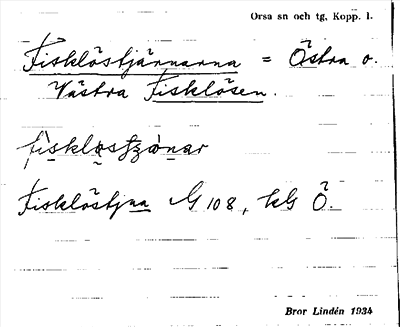 Orsa sn och tg, Kopp. l.
Fisklöstjärnarna = Östra o.
Västra Fisklösen.
Fisklöstjna G 108, kG Ö.
Bror Lindén 1934